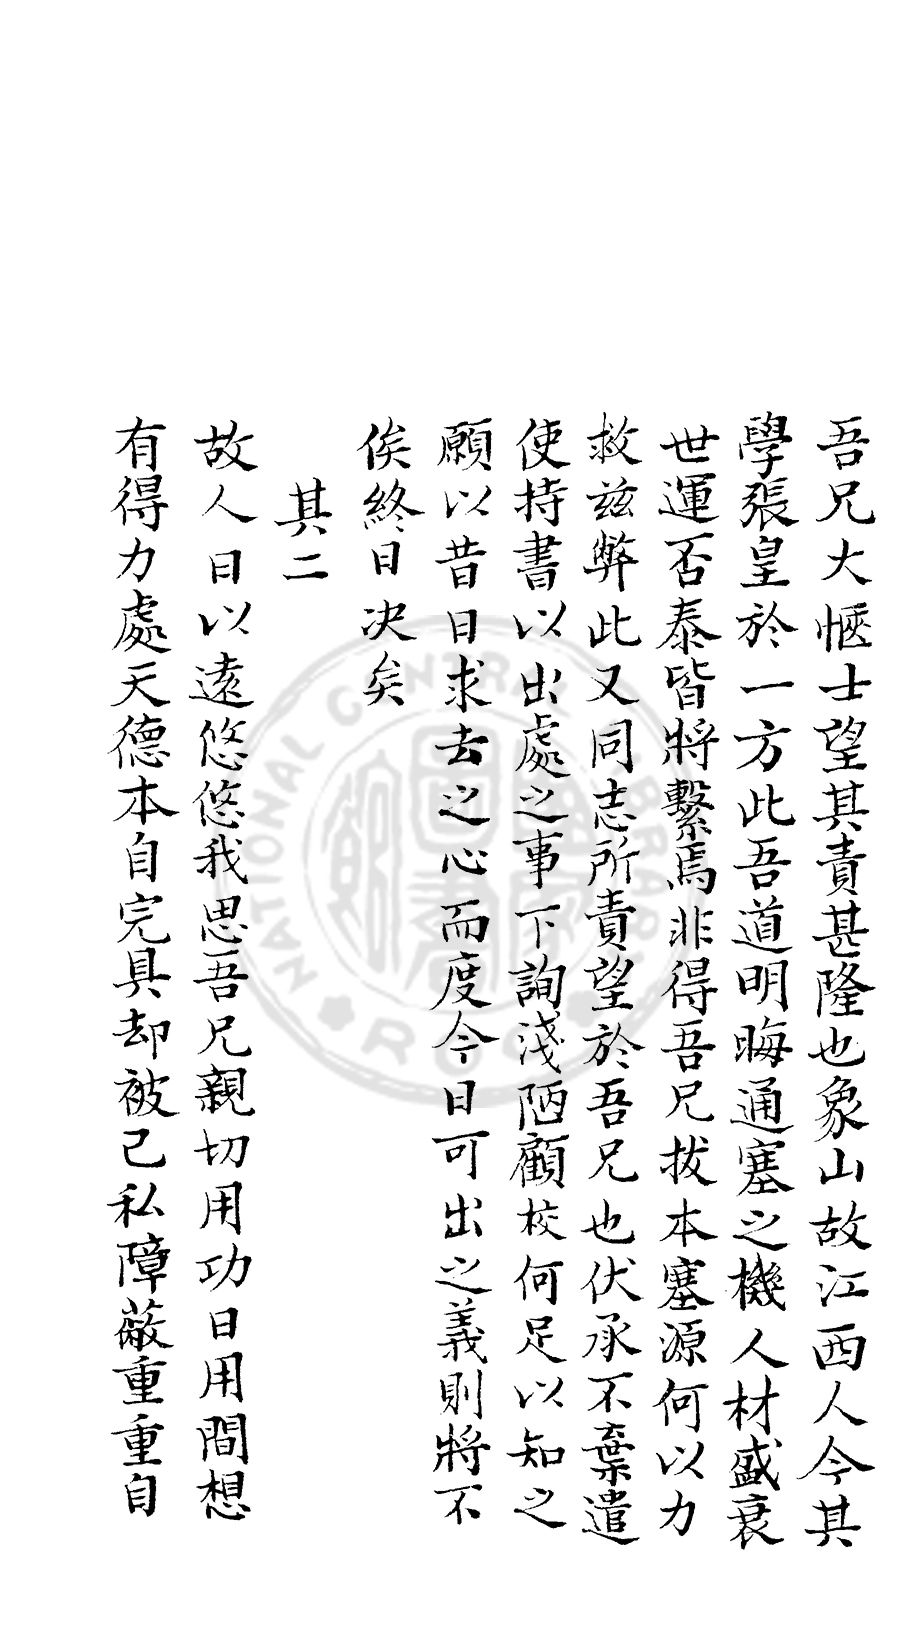 吾兄大愜士望其責甚隆也象山故江西人今其
學張皇於一方此吾道明晦通塞之機人材盛衰
世運否泰皆將繫焉非得吾兄拔本塞源何以力
救兹弊此又同志所責望於吾兄也伏承不棄遣
使持書以出處之事下詢淺陋顧校何足以知之
願以昔日求去之心而度今日可出之義則將不
俟終日决矣
其二
故人日以遠悠悠我思吾兄親切用功日用間想
有得力處天德本自完具却被己私障蔽重重自
NATIONAL CENTRAL LIBRARY
R O C